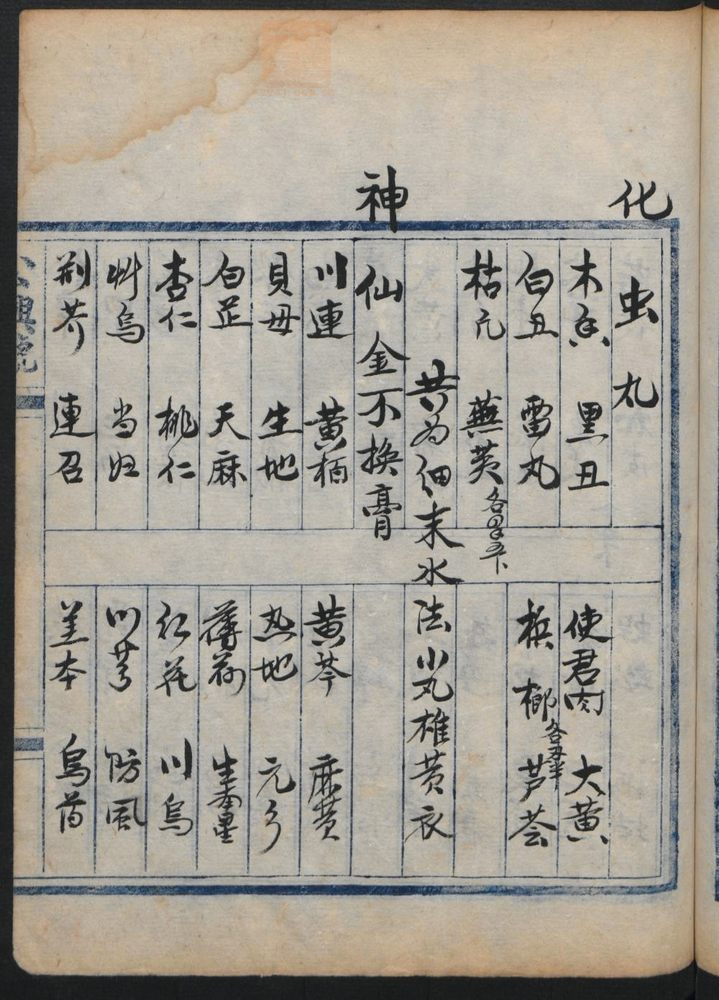 化虫丸
木香 黑丑 使君肉 大黄
白丑 雷丸 槟榔 芦荟
枯凡 蕪荑
共为细末水法小丸雄黄衣
神仙金不换膏
川連 黄栢 黄芩 麻黄
貝母 生地 熟地 元
白芷 天麻 薄荷
杏仁 桃仁 红花 川烏
艸烏 当归 川芎 防風
荆芥 連召 羗本 烏药